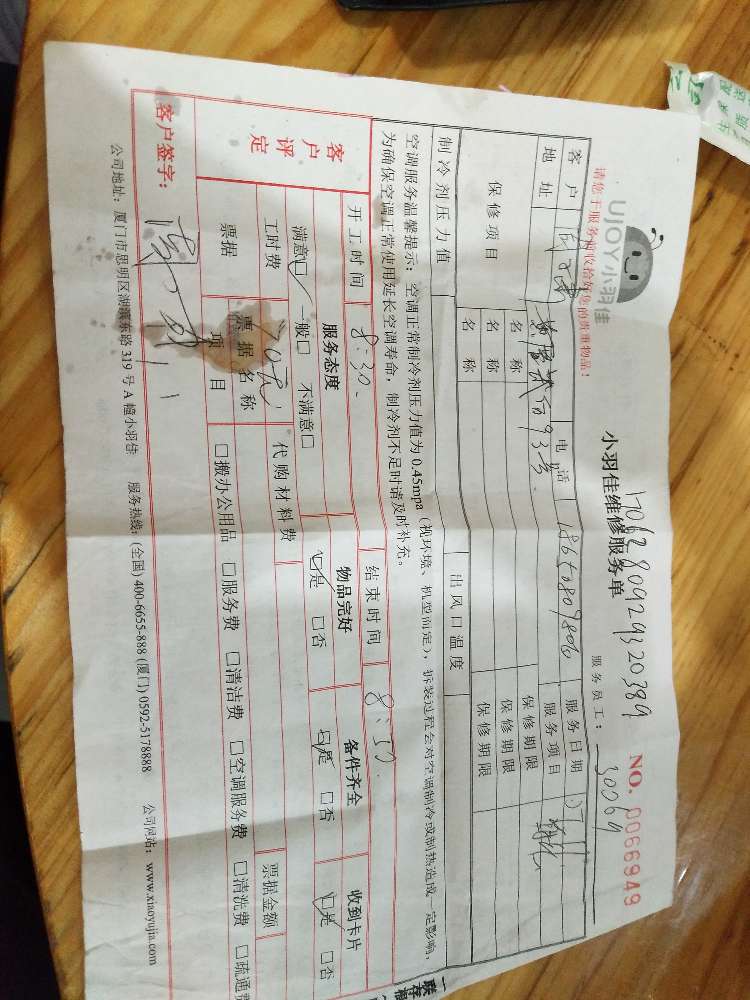 UJOY小羽佳
小羽佳维修服务单
NO. 0066949
请您于服务前收拾好您的贵重物品!
服务员工: 30069
客户
电话 18650809806
服务日期
地址
服务项目
保修项目
名称
保修期限
名称
保修期限
名称
保修期限
制冷剂压力值
出风口温度
空调服务温馨提示: 空调正常制冷剂压力值为 0.45mpa (视环境、机型而定), 拆装过程会对空调制冷或制热造成一定影响,
为确保空调正常使用延长空调寿命, 制冷剂不足时请及时补充。
开工时间 8:30
结束时间 8:50
客户评定
服务态度
物品完好
备件齐全
收到卡片
满意☑ 一般□ 不满意□
☑是 □否
☑是 □否
☑是 □否
工时费
代购材料费
票据金额
票据
票据名称
项目
□搬办公用品 □服务费 □清洁费 □空调服务费 □清洗费 □疏通费
客户签字:
公司地址: 厦门市思明区湖滨东路 319 号 A 幢小羽佳 服务热线: (全国) 400-6655-888 (厦门) 0592-5178888 公司网站: www.xiaoyujia.com